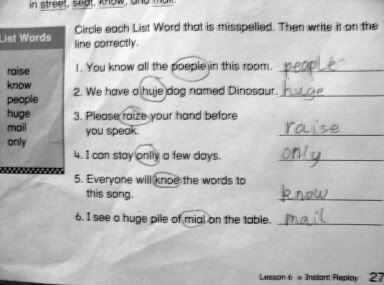 in street, seat, know, and mail.
Circle each List Word that is misspelled. Then write it on the
line correctly.
List Words
raise
know
people
huge
mail
only
1. You know all the poeple in this room. people
2. We have a huje dog named Dinosaur. huge
3. Please raize your hand before
you speak. raise
4. I can stay onlly a few days. only
5. Everyone will knoe the words to
this song. know
6. I see a huge pile of mial on the table. mail
Lesson 6 • Instant Replay 27